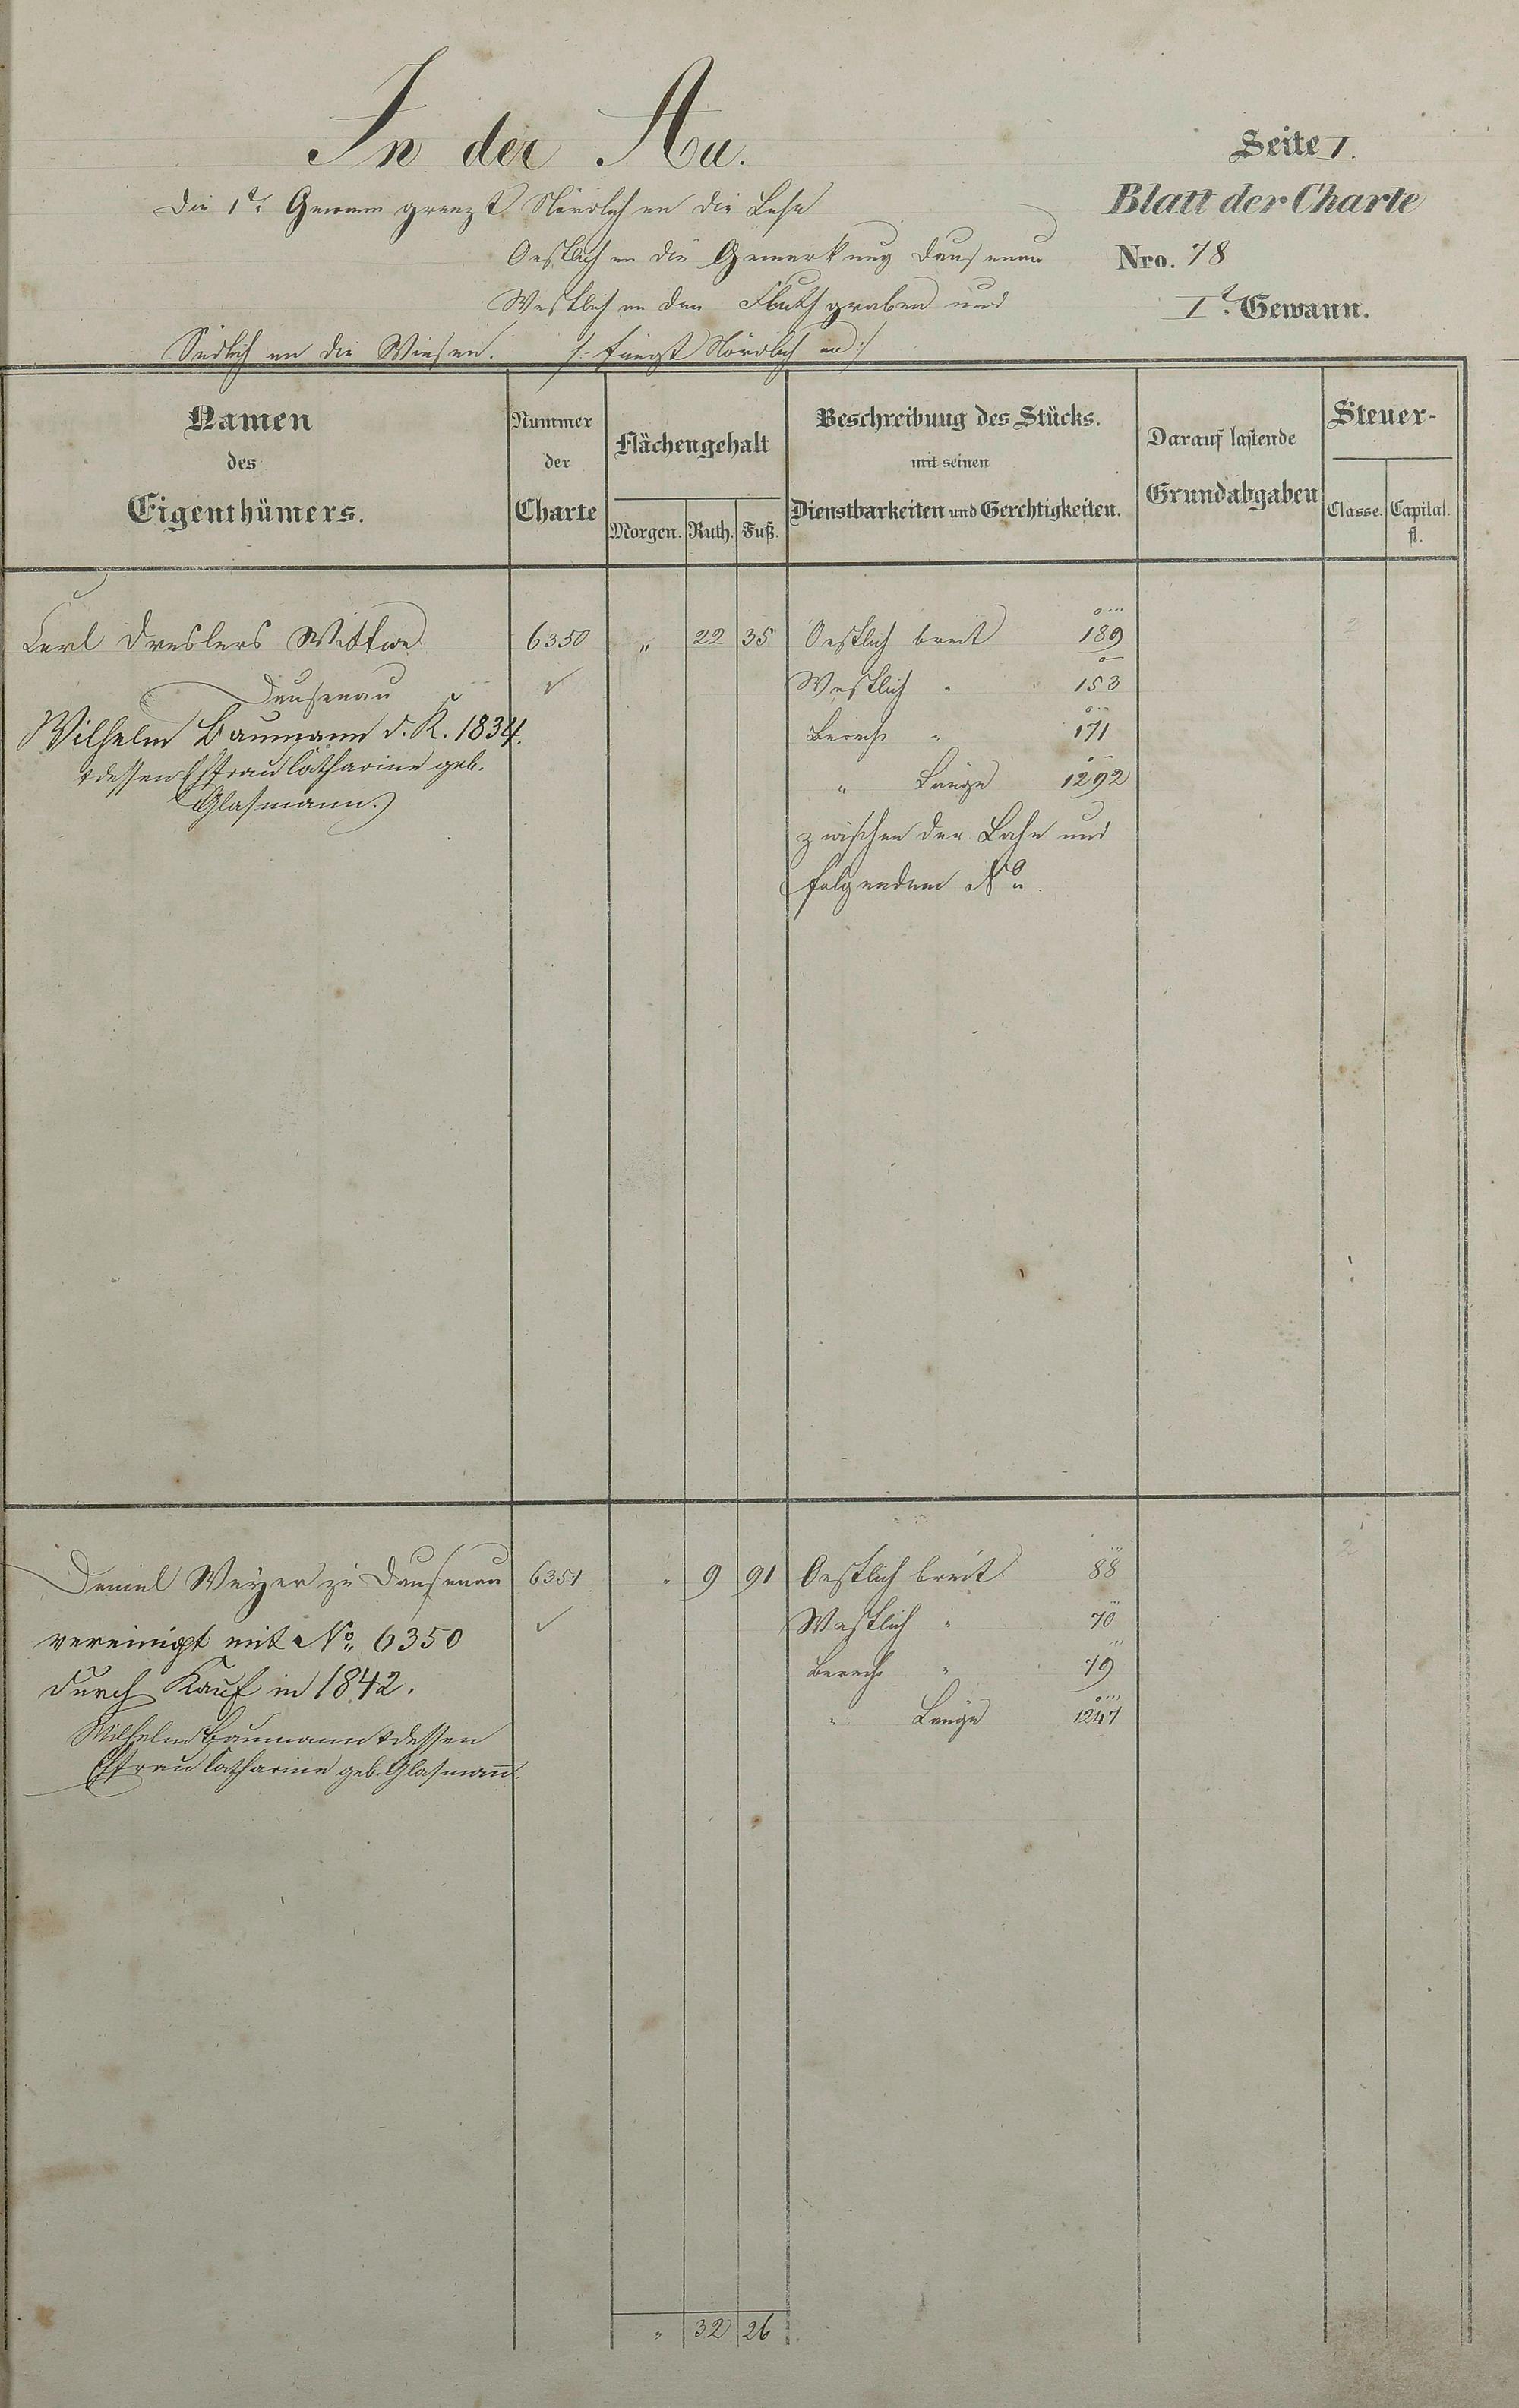 In der Au.
Seite I.
Die 1te Gewann grenzt Nördlich an die Lahn
Blatt der Charte
Oestlich an die Gemarkung Dausenau
Nro. 78
Westlich an den Fluthgraben und
Ite Gewann.
Südlich an die Wiesen. /: fängt Nördlich an :/
Namen des Eigenthümers.
Nummer der Charte
Flächengehalt
Morgen. Ruth. Fuß.
Beschreibung des Stücks.
mit seinen
Dienstbarkeiten und Gerechtigkeiten.
Darauf lastende
Grundabgaben
Steuer-
Classe. Capital.
fl.
Carl Dreslers Wittwe 6350 " 22 35 Oestlich breit 189
Dausenau Westlich " 153
Wilhelm Baumann d. K. 1834. Berech " 171
& dessen Ehfrau Catharine geb. " Länge 1292
Glasmann.
zwischen der Lahn und
folgendem No.
Daniel Meyer zu Dausenau 6351 " 9 91 Oestlich breit 88
vereinigt mit No. 6350 Westlich " 70
durch Kauf in 1842. Berech " 79
Wilhelm Baumann & dessen " Länge 1247
Ehfrau Catharine geb. Glasmann.
" 32 26